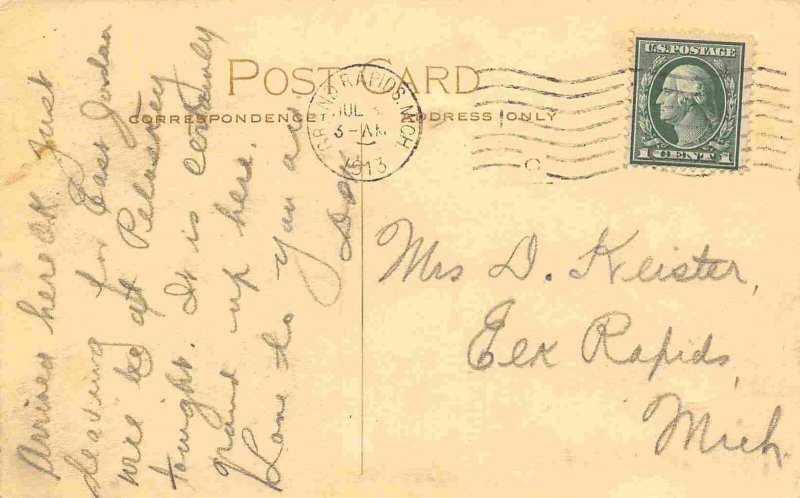 POST CARD
CORRESPONDENCE
ADDRESS ONLY
GRAND RAPIDS, MICH
JUL
3-AM
1913
C
U.S. POSTAGE
1 CENT 1
Arrived here OK Just
leaving for East Jordan
will be at Petoskey
tonight. It is certainly
grand up here.
Love to you all
Mrs D. Keister,
Elk Rapids,
Mich.